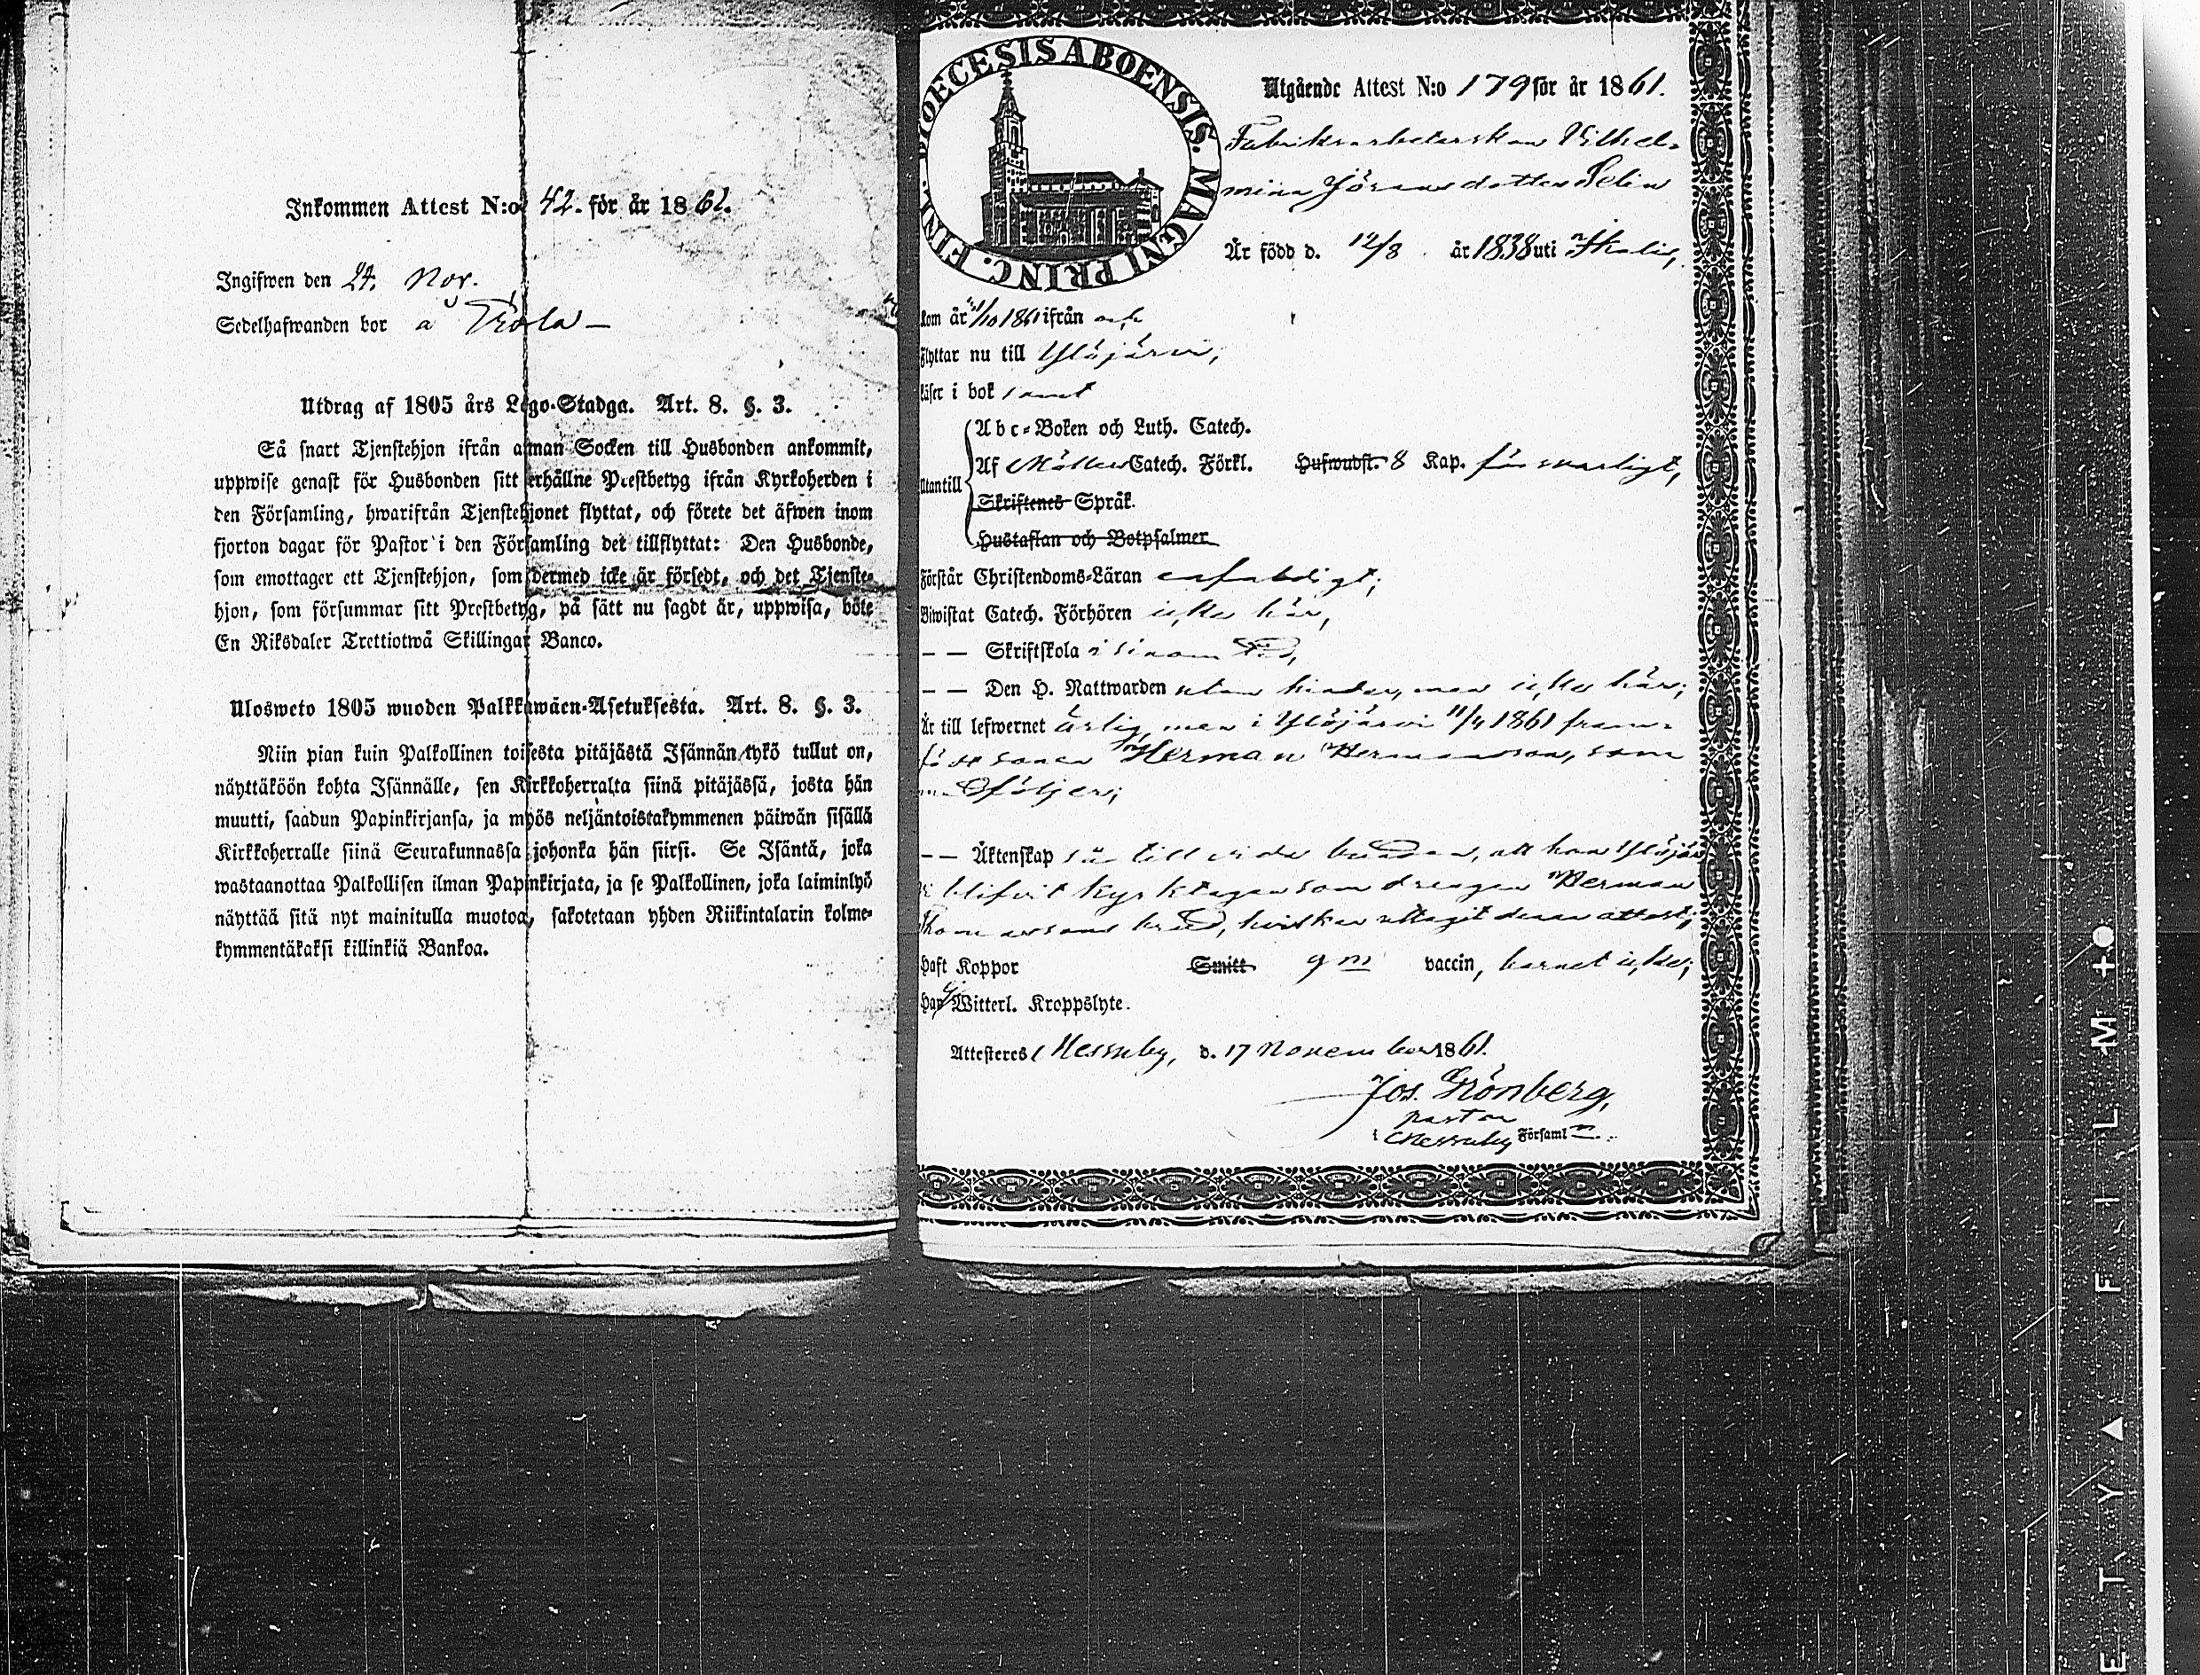 Inkommen Attest N:o 42. för år 1861.
Ingifwen den 24. Nov.
Sedelhafwanden bor å
Utdrag af 1805 års Lego-Stadga. Art. 8. §. 3.
Så snart Tjenstehjon ifrån annan Socken till Husbonden ankommit,
uppwise genast för Husbonden sitt erhållne Prestbetyg ifrån Kyrkoherden i
den Församling, hwarifrån Tjenstehjonet flyttat, och förete det äfwen inom
fjorton dagar för Pastor i den Församling det tillflyttat: Den Husbonde,
som emottager ett Tjenstehjon, som dermed icke är försedt, och det Tjenste-
hjon, som försummar sitt Prestbetyg, på sätt nu sagdt är, uppwisa, böte
En Riksdaler Trettiotwå Skillingar Banco.
Ulosweto 1805 wuoden Palkkawäen-Asetuksesta. Art. 8. §. 3.
Niin pian kuin Palkollinen toisesta pitäjästä Isännän tykö tullut on,
näyttäköön kohta Isännälle, sen Kirkkoherralta siinä pitäjässä, josta hän
muutti, saadun Papinkirjansa, ja myös neljäntoistakymmenen päiwän sisällä
Kirkkoherralle siinä Seurakunnassa johonka hän siirsi. Se Isäntä, joka
wastaanottaa Palkollisen ilman Papinkirjata, ja se Palkollinen, joka laiminlyö
näyttää sitä nyt mainitulla muotoa, sakotetaan yhden Riikintalarin kolme-
kymmentäkaksi killinkiä Bankoa.
DIOECESIS ABOENSIS. MAGNI PRINC. FINL.
Utgående Attest N:o 179 för år 1861.
Fabriksarbeterskan Vilhel-
mina Jöransdotter Selin
Är född d. 12/8 år 1838 uti Ikalis,
kom år /10 1861 ifrån
flyttar nu till Ylöjärvi,
läser i bok samt
Utantill
Abc-Boken och Luth. Catech.
Af Möllers Catech. Förkl. Hufwudst. 8 Kap. försvarligt,
Skriftenes Språk.
Hustaflan och Botpsalmer
förstår Christendoms-Läran enfaldigt;
Biwistat Catech. Förhören icke här,
— — Skriftskola i sinom tid,
— — Den H. Nattwarden utan hinder, men icke här;
Är till lefwernet ärlig, men i Ylöjärvi 11/4 1861 fram-
född sonen Herman Hermansson, som
medföljer;
— — Äktenskap så till vida bunden, att hon i Ylöjär
vi blifvit kyrktagen som drengen Herman
brud, hvilken uttagit denna attest;
haft Koppor Smitt gm vaccin, barnet icke;
har ej Witterl. Kroppslyte.
Attesteres i Messuby, d. 17 November 1861.
Jos. Grönberg,
pastor
i Messuby Församl:n
E T Y. ▲ F I L M